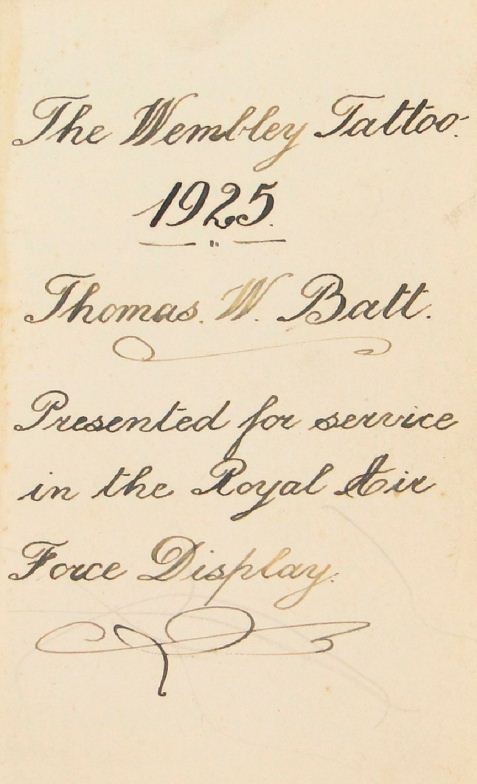 The Wembley Tattoo.
1925.
Thomas. W. Batt.
Presented for service
in the Royal Air
Force Display.